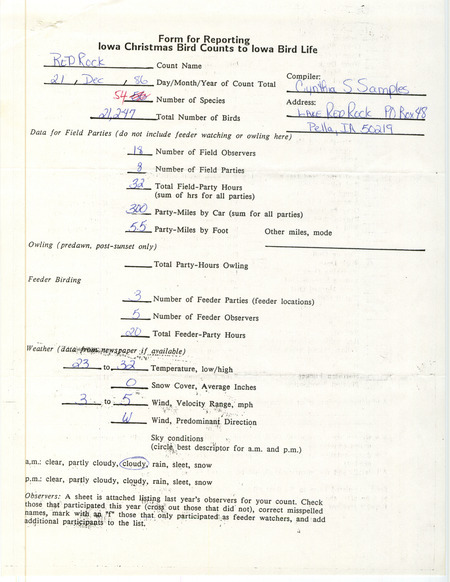 Form for Reporting
Iowa Christmas Bird Counts to Iowa Bird Life
RED Rock Count Name
21, Dec, 86 Day/Month/Year of Count Total
Compiler:
Cynthia S Samples
54 Number of Species
Address:
21,247 Total Number of Birds
Lake Red Rock PO Box 48
Pella, IA 50219
Data for Field Parties (do not include feeder watching or owling here)
18 Number of Field Observers
8 Number of Field Parties
32 Total Field-Party Hours
(sum of hrs for all parties)
300 Party-Miles by Car (sum for all parties)
5.5 Party-Miles by Foot Other miles, mode
Owling (predawn, post-sunset only)
Total Party-Hours Owling
Feeder Birding
3 Number of Feeder Parties (feeder locations)
5 Number of Feeder Observers
20 Total Feeder-Party Hours
Weather (data from newspaper if available)
23 to 32 Temperature, low/high
0 Snow Cover, Average Inches
3 to 5 Wind, Velocity Range, mph
W Wind, Predominant Direction
Sky conditions
(circle best descriptor for a.m. and p.m.)
a.m.: clear, partly cloudy, cloudy, rain, sleet, snow
p.m.: clear, partly cloudy, cloudy, rain, sleet, snow
Observers: A sheet is attached listing last year's observers for your count. Check
those that participated this year (cross out those that did not), correct misspelled
names, mark with an "f" those that only participated as feeder watchers, and add
additional participants to the list.